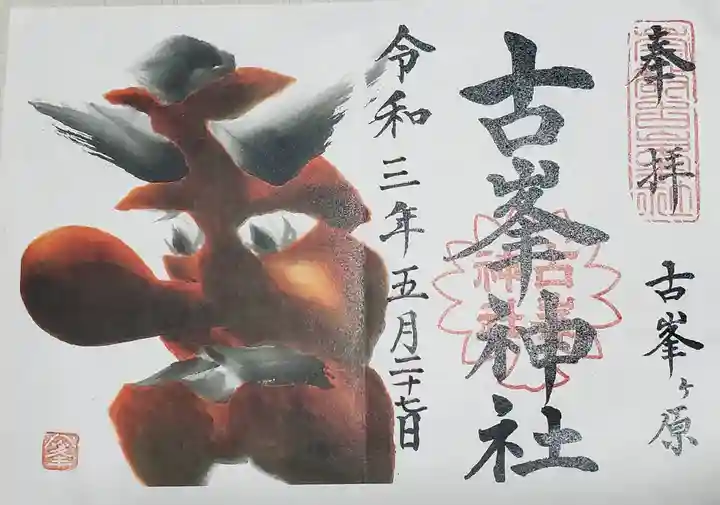 奉拝
古峯ヶ原
古峯神社
令和三年五月二十七日
古峯神社
峯